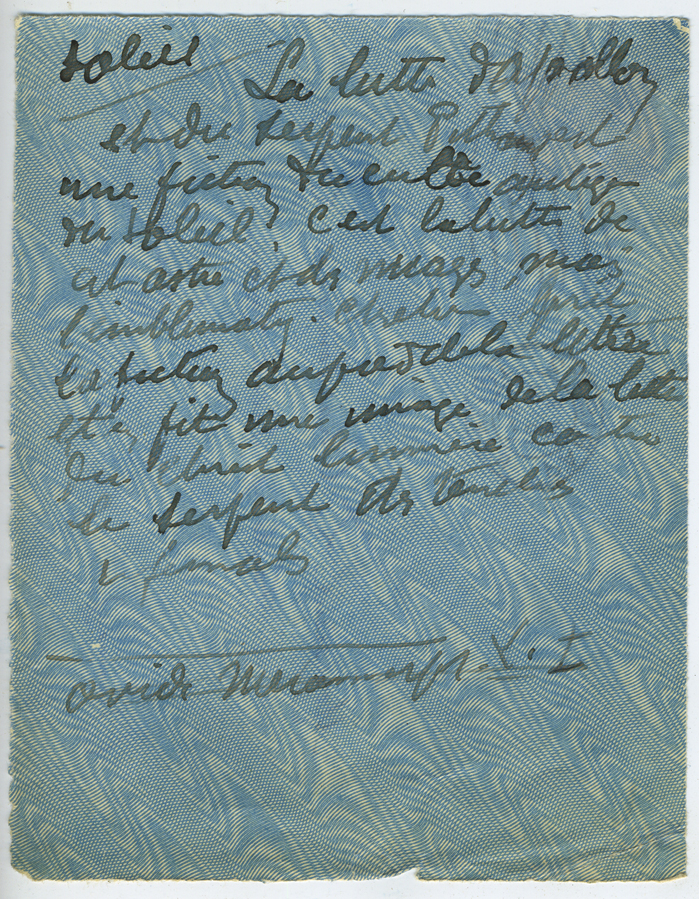 soleil
La lutte d'Apollon
et du serpent Python est
une fiction du culte antique
du soleil. C'est la lutte de
cet astre et des nuages, mais
la fiction au pied de la lettre
et en fit une image de la lutte
du Christ lumière contre
le serpent des ténèbres
Ovide Metamorph. V. I